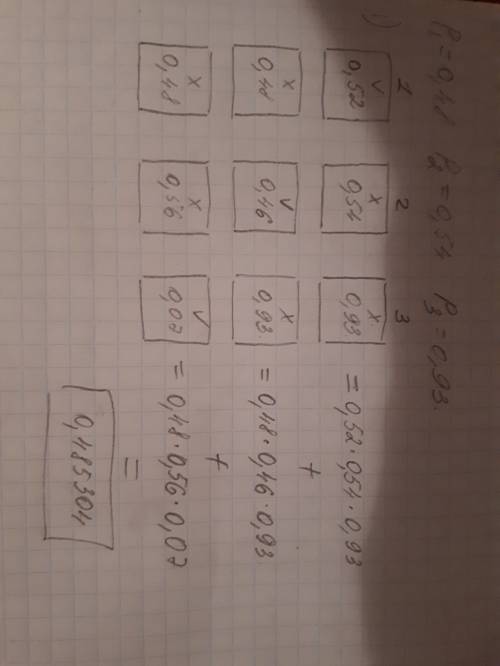 P₁ = 0,48 P₂ = 0,54 P₃ = 0,93.
1)
1 2 3
V X X
0,52 0,54 0,93 = 0,52·0,54·0,93
+
X V X
0,48 0,46 0,93. = 0,48·0,46·0,93
+
X X V
0,48 0,56 0,07 = 0,48·0,56·0,07
=
0,485304